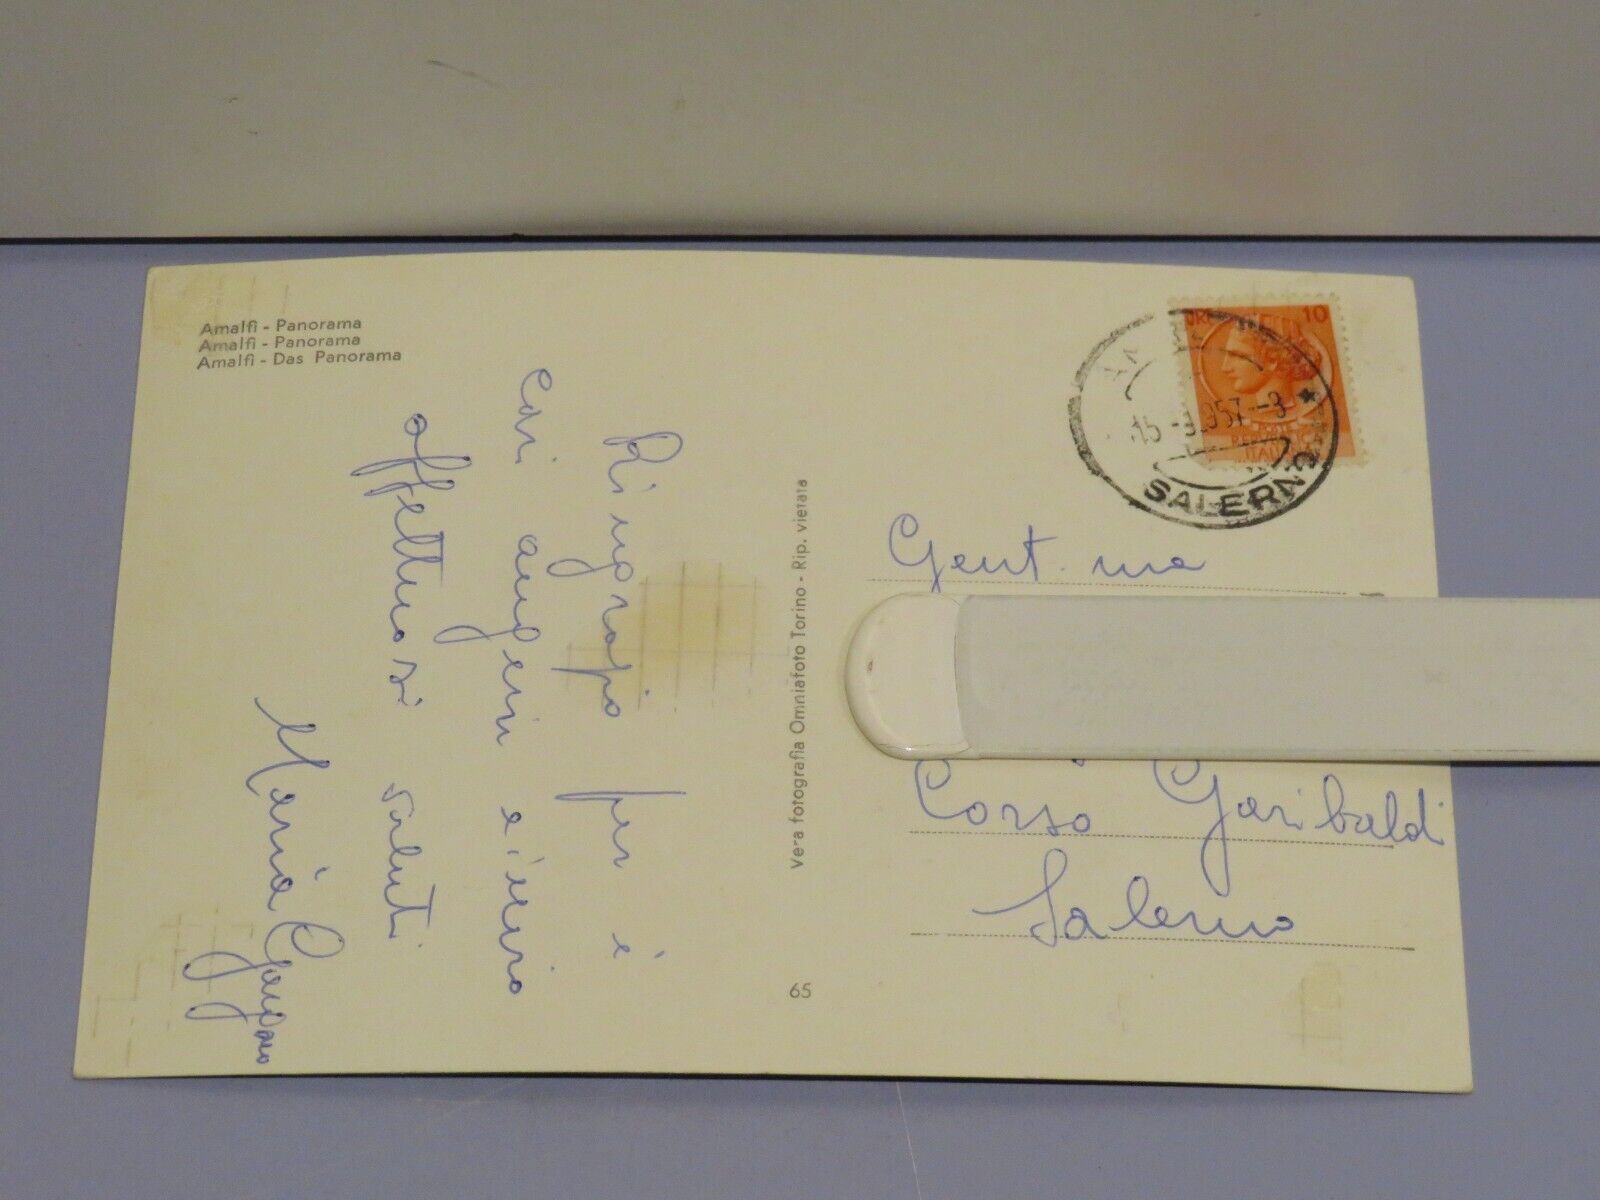 Amalfi - Panorama
Amalfi - Panorama
Amalfi - Das Panorama
Ringrazio per i
cari auguri e invio
affettuosi saluti
Maria
Vera fotografia Omniafoto Torino - Rip. vietata
65
10
POSTE
REPUBBLICA
ITALIANA
-15 - 957 - 8
SALERNO
Gent.ma
Corso Garibaldi
Salerno